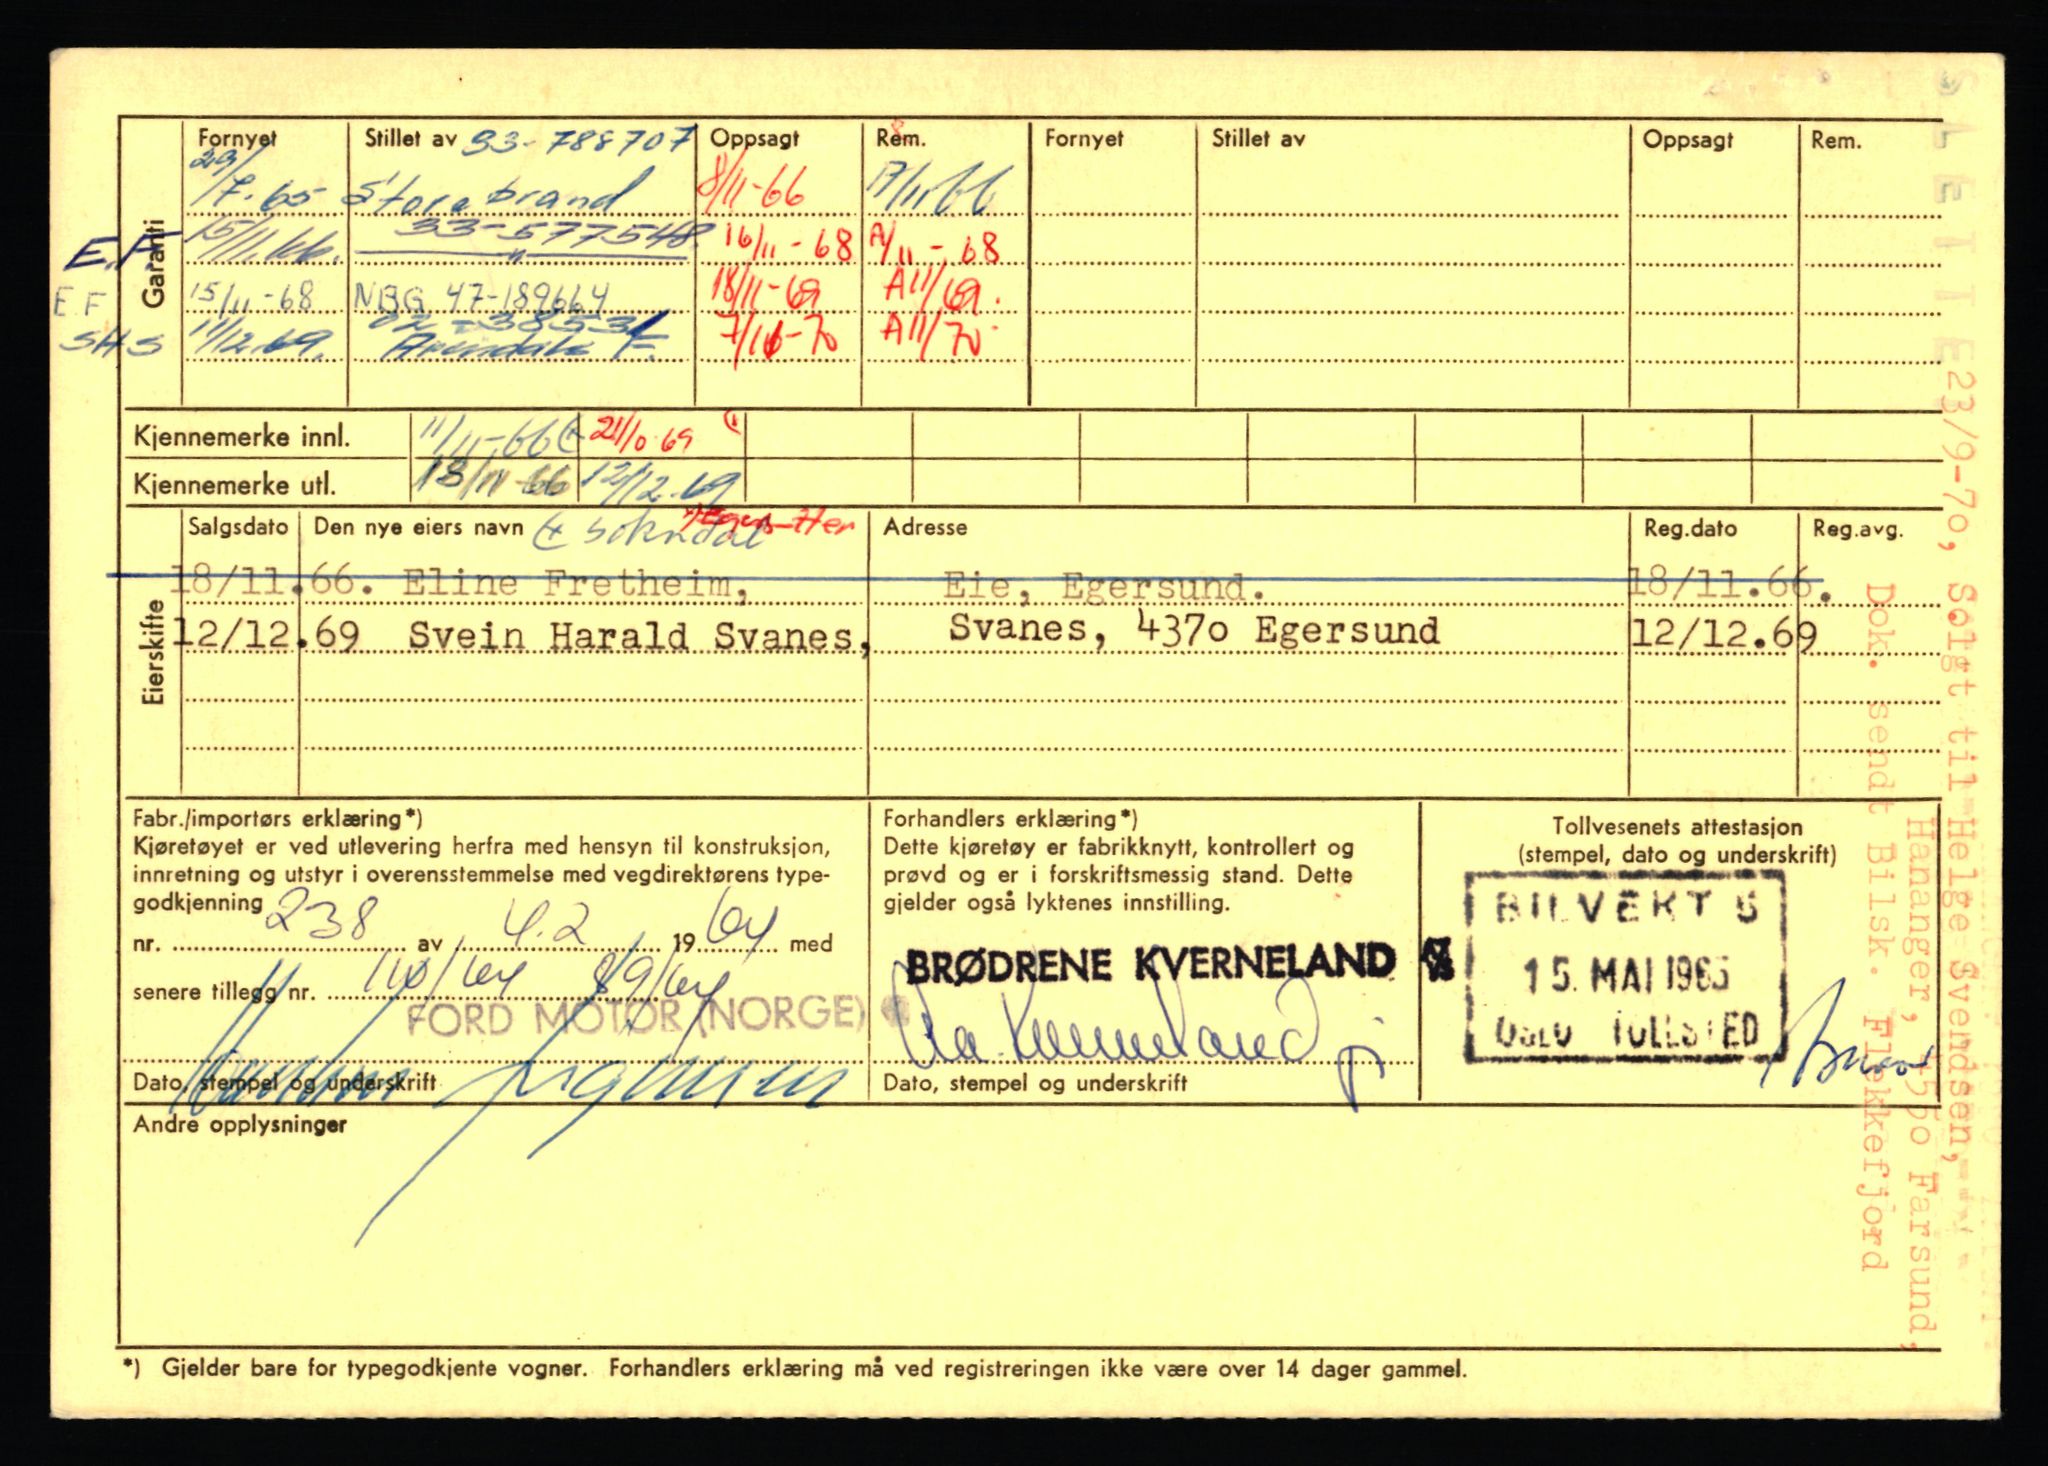 Fornyet Stillet av 33-788707 Oppsagt Rem. Fornyet Stillet av Oppsagt Rem.
29/7.65 Storebrand 8/11-66 7/11 66
Garanti
E.F 15/11.66. 33-577548 16/11-68 A/11-68
E F 15/11-68 NBG 47-189664 18/11-69 A11/69.
SHS 11/12.69. 02-38531 7/10-70 A11/70
Arendals F.
Kjennemerke innl. 11/11-66 21/10.69
Kjennemerke utl. 18/11-66 12/12.69
Salgsdato Den nye eiers navn Sokndal Adresse Reg.dato Reg.avg.
Eierskifte
18/11.66. Eline Fretheim, Eie, Egersund. 18/11.66.
12/12.69 Svein Harald Svanes, Svanes, 4370 Egersund 12/12.69
Fabr./importørs erklæring*)
Kjøretøyet er ved utlevering herfra med hensyn til konstruksjon,
innretning og utstyr i overensstemmelse med vegdirektørens type-
godkjenning
nr. 238 av 4.2 1964 med
senere tillegg nr. 110/64 89/64
FORD MOTOR (NORGE)
Dato, stempel og underskrift
Forhandlers erklæring*)
Dette kjøretøy er fabrikknytt, kontrollert og
prøvd og er i forskriftsmessig stand. Dette
gjelder også lyktenes innstilling.
BRØDRENE KVERNELAND A/S
Dato, stempel og underskrift
Tollvesenets attestasjon
(stempel, dato og underskrift)
BILVEKT S
15. MAI 1965
OSLO TOLLSTED
Andre opplysninger
*) Gjelder bare for typegodkjente vogner. Forhandlers erklæring må ved registreringen ikke være over 14 dager gammel.
SLETTE 23/9-70, Solgt til Helge Svendsen,
Hananger, 4550 Farsund,
Dok. sendt Bilsk. Flekkefjord